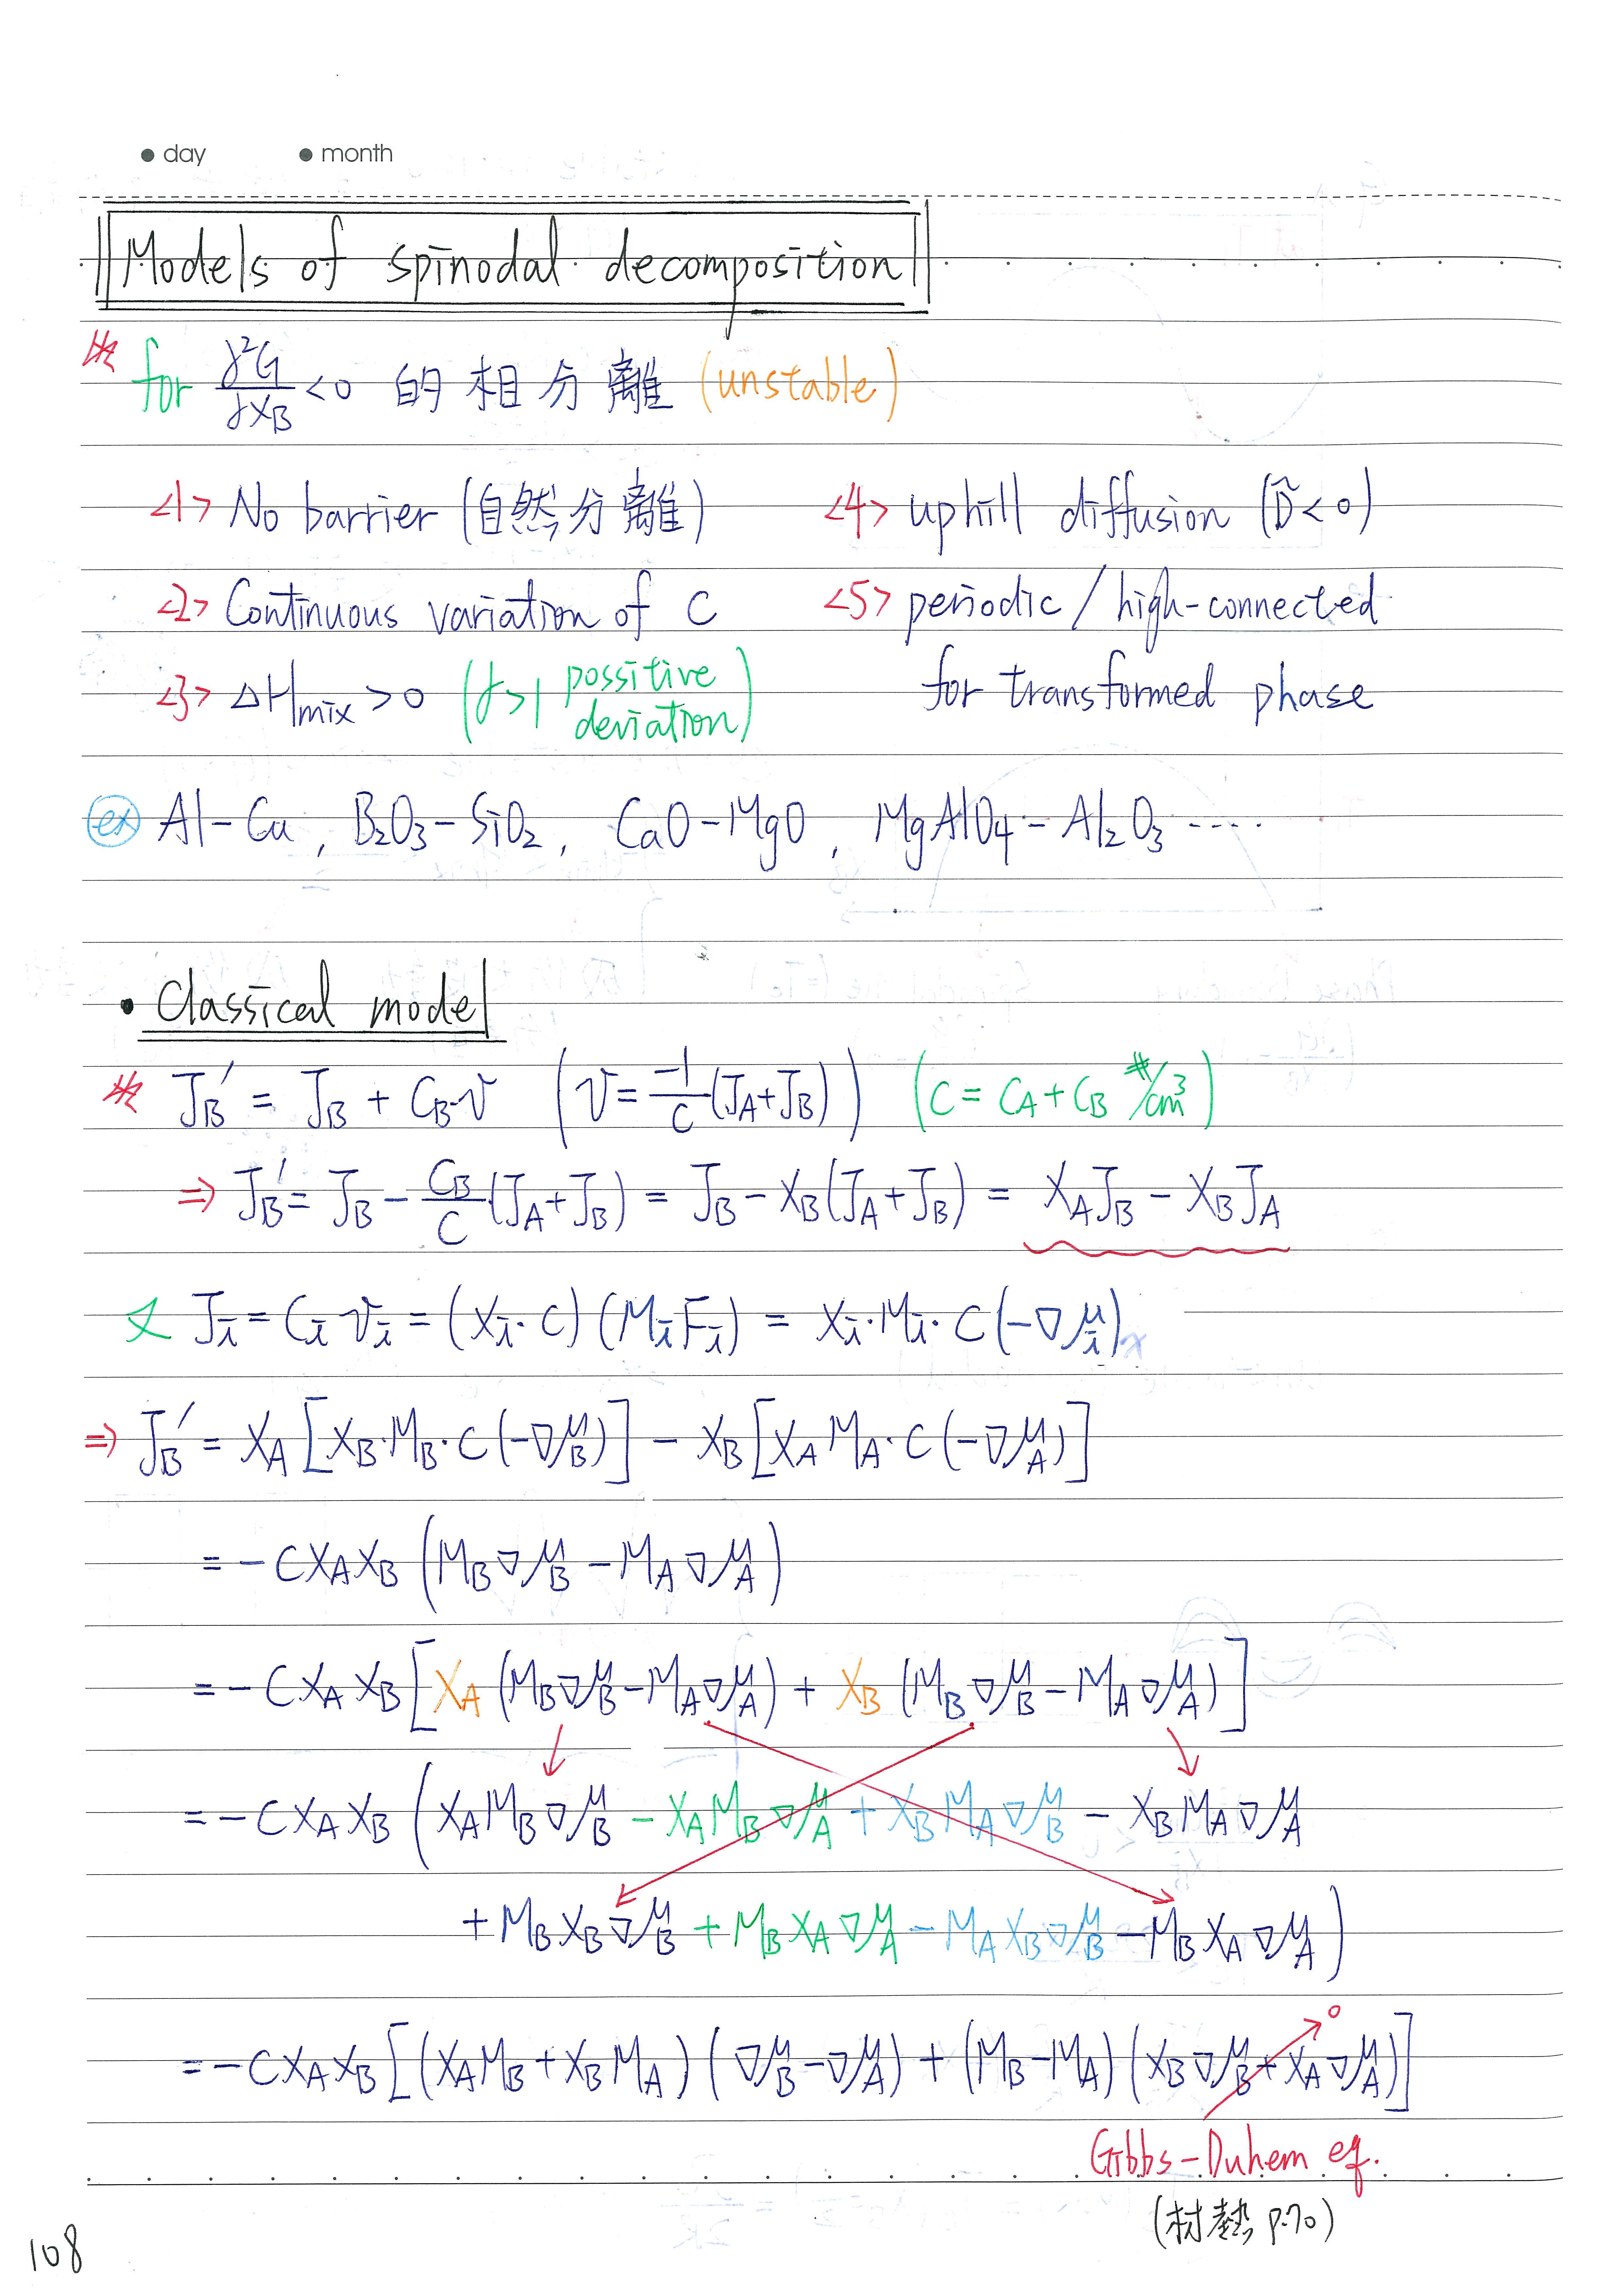 ● day ● month
Models of spinodal decomposition
※ for ∂²G/∂X_B < 0 的相分離 (unstable)
<1> No barrier (自然分離) <4> uphill diffusion (D̃ < 0)
<2> Continuous variation of C <5> periodic / high-connected
<3> ΔH_mix > 0 (γ>1 possitive deviation) for transformed phase
ex Al-Cu, B₂O₃-SiO₂, CaO-MgO, MgAlO₄-Al₂O₃ ····
• Classical model
※ J_B' = J_B + C_B·v (v = -1/C (J_A+J_B)) (C = C_A + C_B #/cm³)
⇒ J_B' = J_B - C_B/C (J_A+J_B) = J_B - X_B(J_A+J_B) = X_A J_B - X_B J_A
又 J_i = C_i v_i = (X_i·C)(M_i F_i) = X_i·M_i·C(-∇μ_i)
⇒ J_B' = X_A[X_B·M_B·C(-∇μ_B)] - X_B[X_A M_A·C(-∇μ_A)]
= -C X_A X_B (M_B∇μ_B - M_A∇μ_A)
= -C X_A X_B [X_A(M_B∇μ_B - M_A∇μ_A) + X_B(M_B∇μ_B - M_A∇μ_A)]
= -C X_A X_B (X_A M_B∇μ_B - X_A M_B∇μ_A + X_B M_A∇μ_B - X_B M_A∇μ_A
+ M_B X_B∇μ_B + M_B X_A∇μ_A - M_A X_B∇μ_B - M_B X_A∇μ_A)
= -C X_A X_B [(X_A M_B + X_B M_A)(∇μ_B - ∇μ_A) + (M_B - M_A)(X_B∇μ_B + X_A∇μ_A)] 0
Gibbs-Duhem eq.
(材熱 P.70)
108